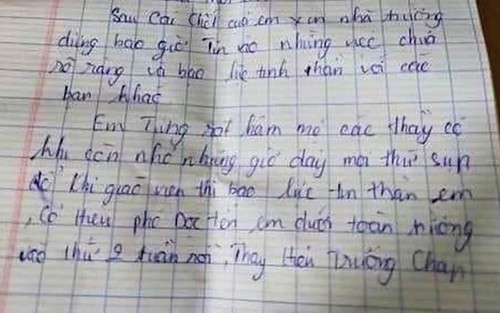 Sau cái chết của em xin nhà trường
đừng bao giờ tin vào những việc chưa
rõ ràng và bạo lực tinh thần với các
bạn khác
Em Từng rất hâm mộ các thầy cô
khi còn nhỏ nhưng giờ đây mọi thứ sụp
đổ khi giáo viên thì bạo lực tin thần em
, Cô hiệu phó đọc tên em dưới toàn trường
vào thứ 2 tuần rồi, Thầy Hiệu Trưởng